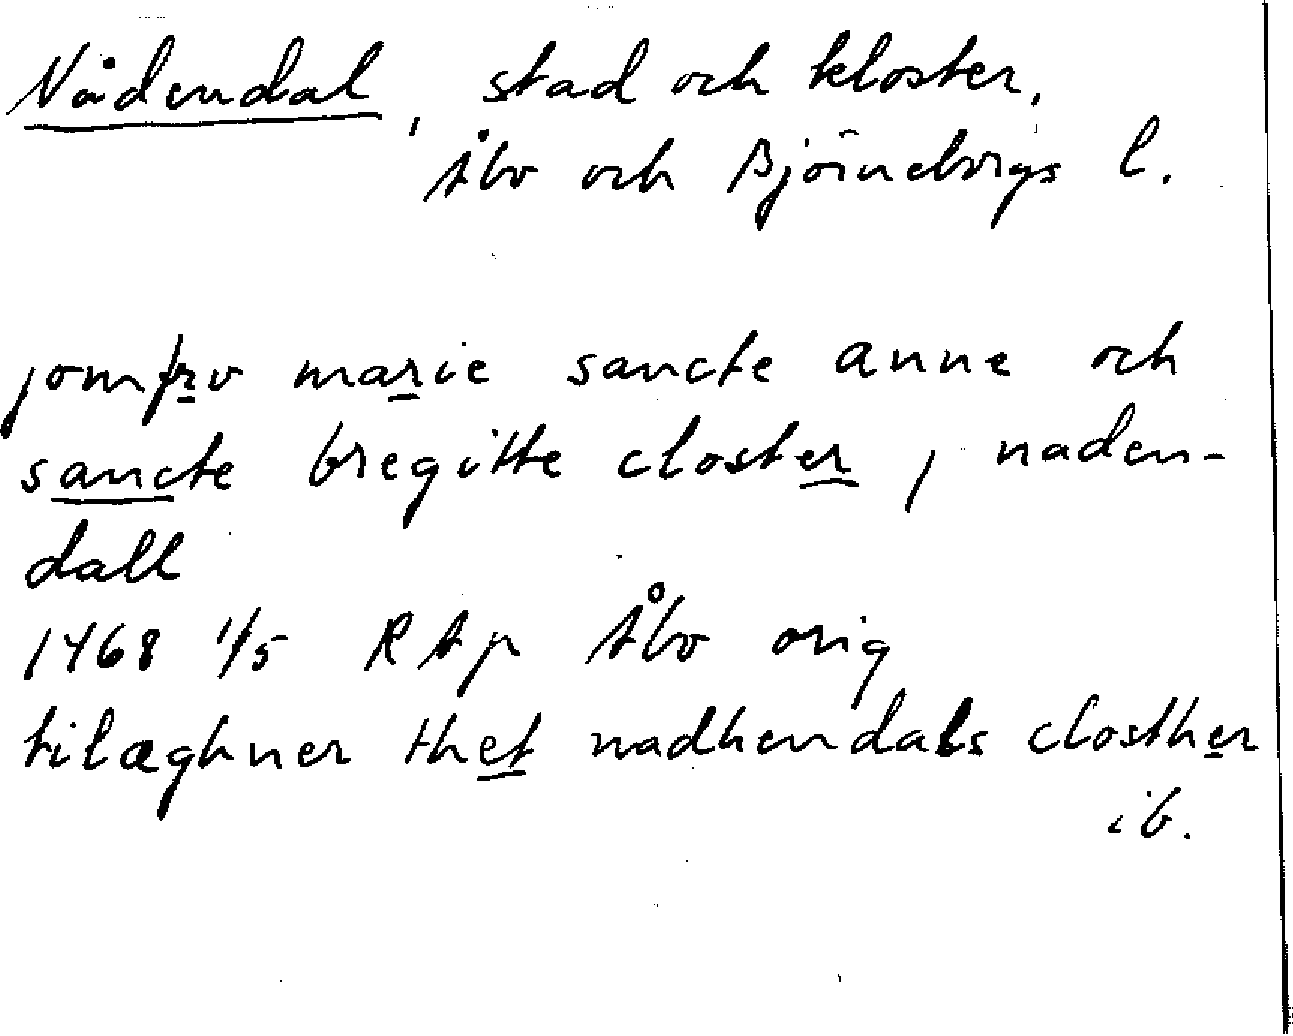 Nådendal, stad och kloster,
Åbo och Björneborgs l.
jomfrv marie sancte anne och
sancte bregitte closter j naden-
dall
1468 1/5 RAp Åbo orig
tilæghner thet nadhendals closther
ib.